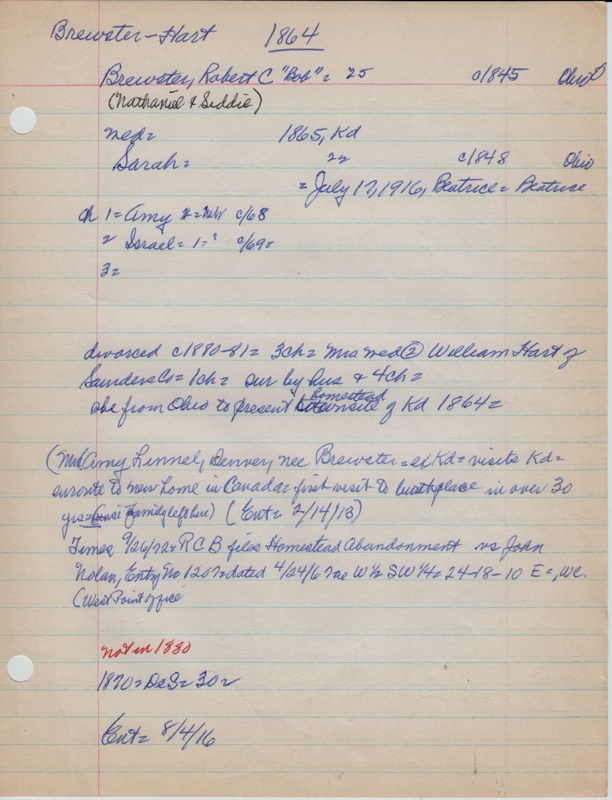 Brewster-Hart 1864
Brewster, Robert C "Bob" = 25 c1845 Ohio
(Nathaniel & Siddie)
med= 1865, Kd
Sarah= 22 c1848 Ohio
= July 17, 1916, Beatrice = Beatrice
ch 1= Amy 2= Neb c/68
2 Israel= 1= c/69=
3=
divorced c1880-81= 3ch= Mrs med ② William Hart of
Saunders Co= 1ch= sur by hus & 4ch=
she from Ohio to present homestead townsite of Kd 1864=
(Mrs Amy Linnel, Denver, nee Brewster = at Kd= visits Kd=
enroute to new home in Canada= first visit to birthplace in over 30
yrs= since family left here) (Ent= 2/14/13)
Times 9/26/72= R C B files Homestead Abandonment vs John
Nolan, Entry No 1207= dated 4/24/67= W½ SW¼= 24-18-10 E=, WC
(West Point office
not in 1880
1870= DeS= 30=
Ent= 8/4/16